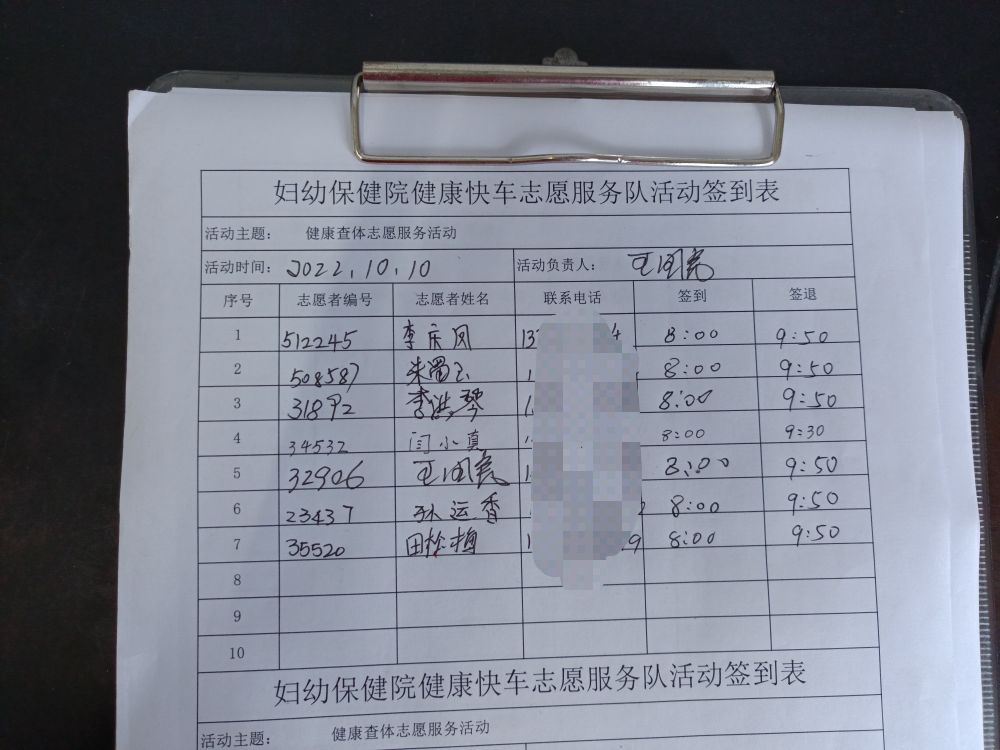 妇幼保健院健康快车志愿服务队活动签到表
活动主题: 健康查体志愿服务活动
活动时间: 2022.10.10 活动负责人: 王国亮
序号 志愿者编号 志愿者姓名 联系电话 签到 签退
1 512245 李庆凤 13 4 8:00 9:50
2 508587 朱蜀玉 1 8:00 9:50
3 31892 李洪琴 1 8:00 9:50
4 34532 闫小真 1 8:00 9:30
5 32906 王国亮 1 8:00 9:50
6 23437 孙运香 2 8:00 9:50
7 35520 田 梅 1 9 8:00 9:50
8
9
10
妇幼保健院健康快车志愿服务队活动签到表
活动主题: 健康查体志愿服务活动